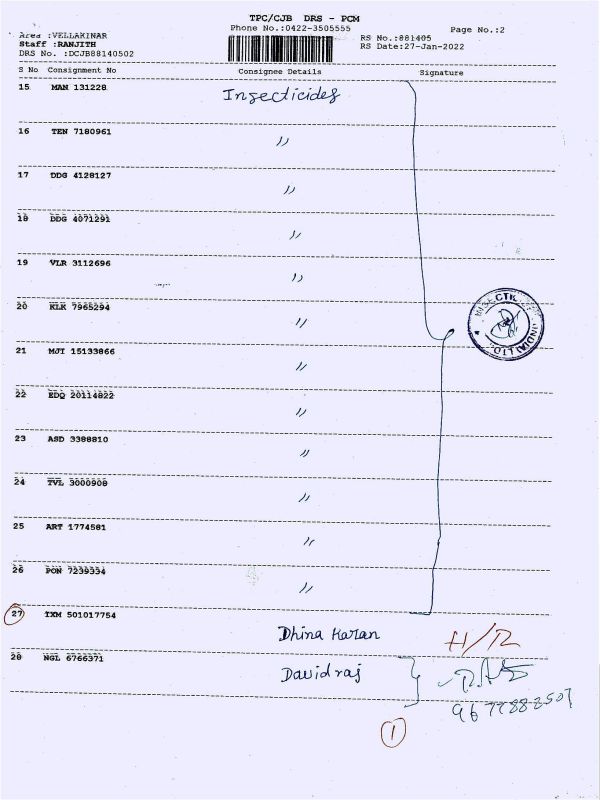 TPC/CJB DRS - PCM
Phone No.:0422-3505555
Page No.:2
Area :VELLAKINAR
Staff :RANJITH
DRS No. :DCJB88140502
RS No.:881405
RS Date:27-Jan-2022
S No Consignment No Consignee Details Signature
15 MAN 131228 Insecticides
16 TEN 7180961 "
17 DDG 4128127 "
18 DDG 4071291 "
19 VLR 3112696 "
20 KLK 7965294 "
21 MJI 15133866 "
22 EDQ 20114822 "
23 ASD 3388810 "
24 TVL 3000908 "
25 ART 1774581 "
26 PON 7239334 "
27 TXM 501017754
Dhina Karan H/R
28 NGL 6766371
Davidraj
1